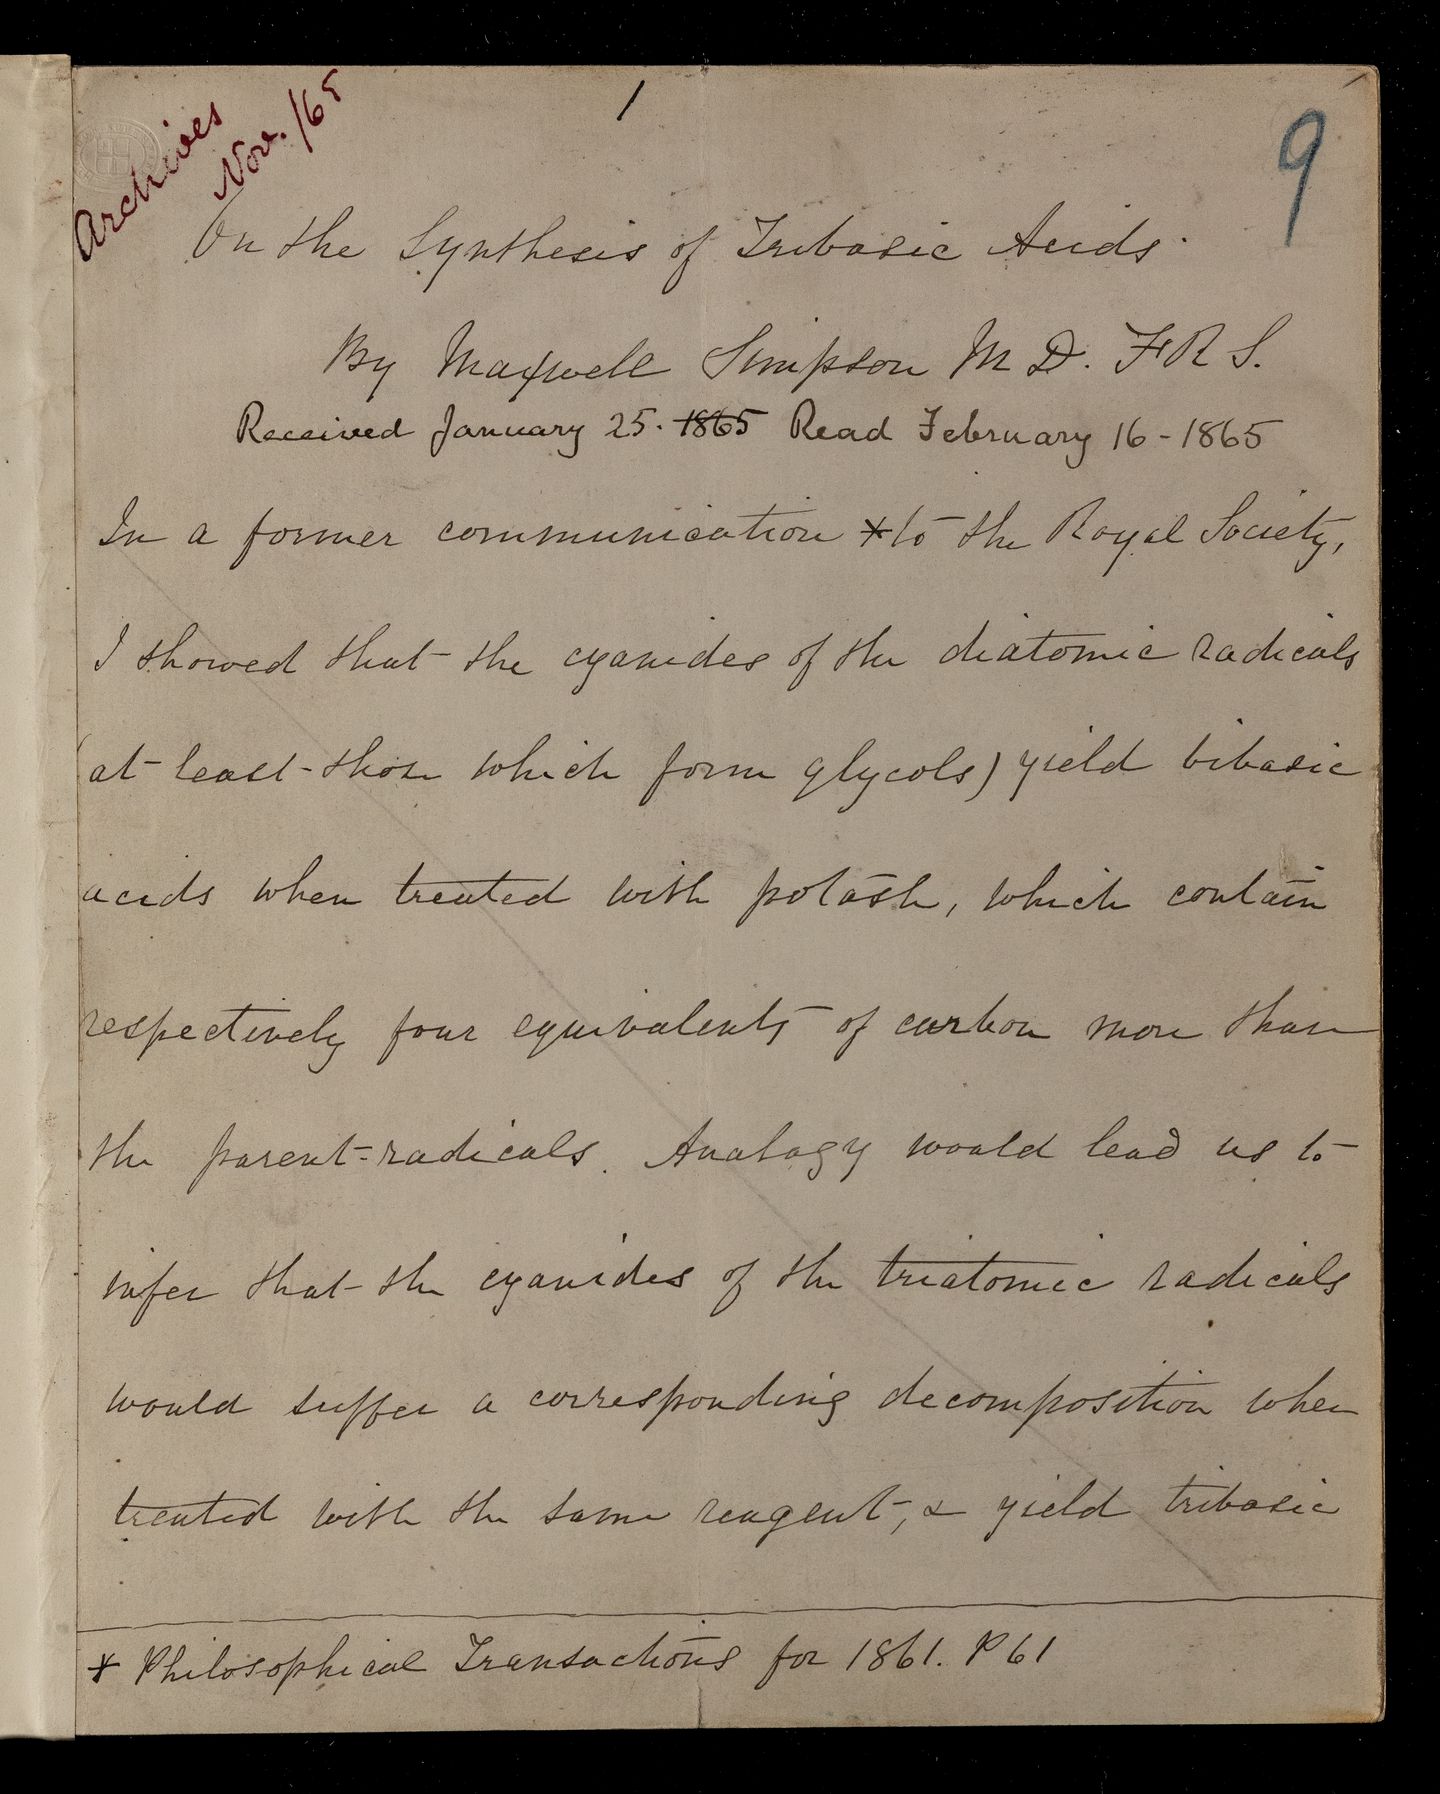 Archives
Nov. /65
1
9
On the Synthesis of Tribasic Acids.
By Maxwell Simpson M D. F R S.
Received January 25. 1865 Read February 16 - 1865
In a former communication * to the Royal Society,
I showed that the cyanides of the diatomic radicals
(at least those which form glycols) yield bibasic
acids when treated with potash, which contain
respectively four equivalents of carbon more than
the parent-radicals. Analogy would lead us to
infer that the cyanides of the triatomic radicals
would suffer a corresponding decomposition when
treated with the same reagent, & yield tribasic
* Philosophical Transactions for 1861. P 61